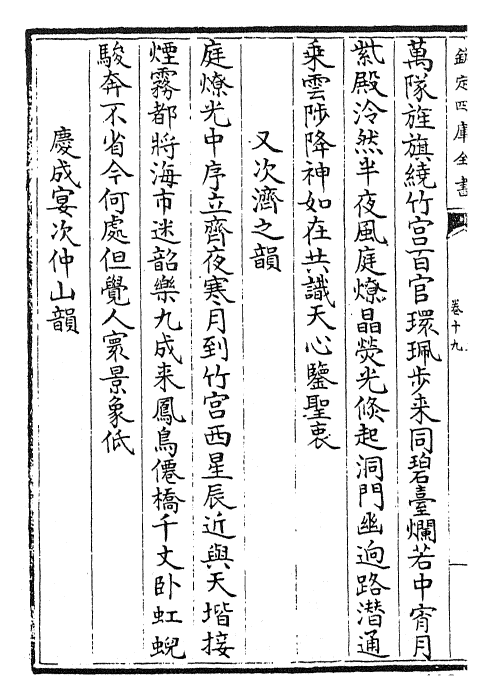 欽定四庫全書
卷十九
萬隊旌旗繞竹宫百官環珮步来同碧臺爛若中宵月
紫殿泠然半夜風庭燎晶熒光倐起洞門幽逈路潜通
乘雲陟降神如在共識天心鑒聖衷
又次濟之韻
庭燎光中序立齊夜寒月到竹宫西星辰近與天堦接
煙霧都將海市迷韶樂九成来鳳鳥僊橋千丈卧虹蜺
駿奔不省今何處但覺人寰景象低
慶成宴次仲山韻